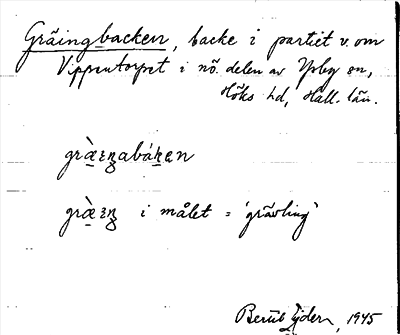 Gräingbacken, backe i partiet v. om
Vippentorpet i nö. delen av Ysby sn,
Höks hd, Hall. län.
græ̀ɪŋabáken
græ̀ɪŋ i målet = 'grävling'
Bertil Ejder, 1945